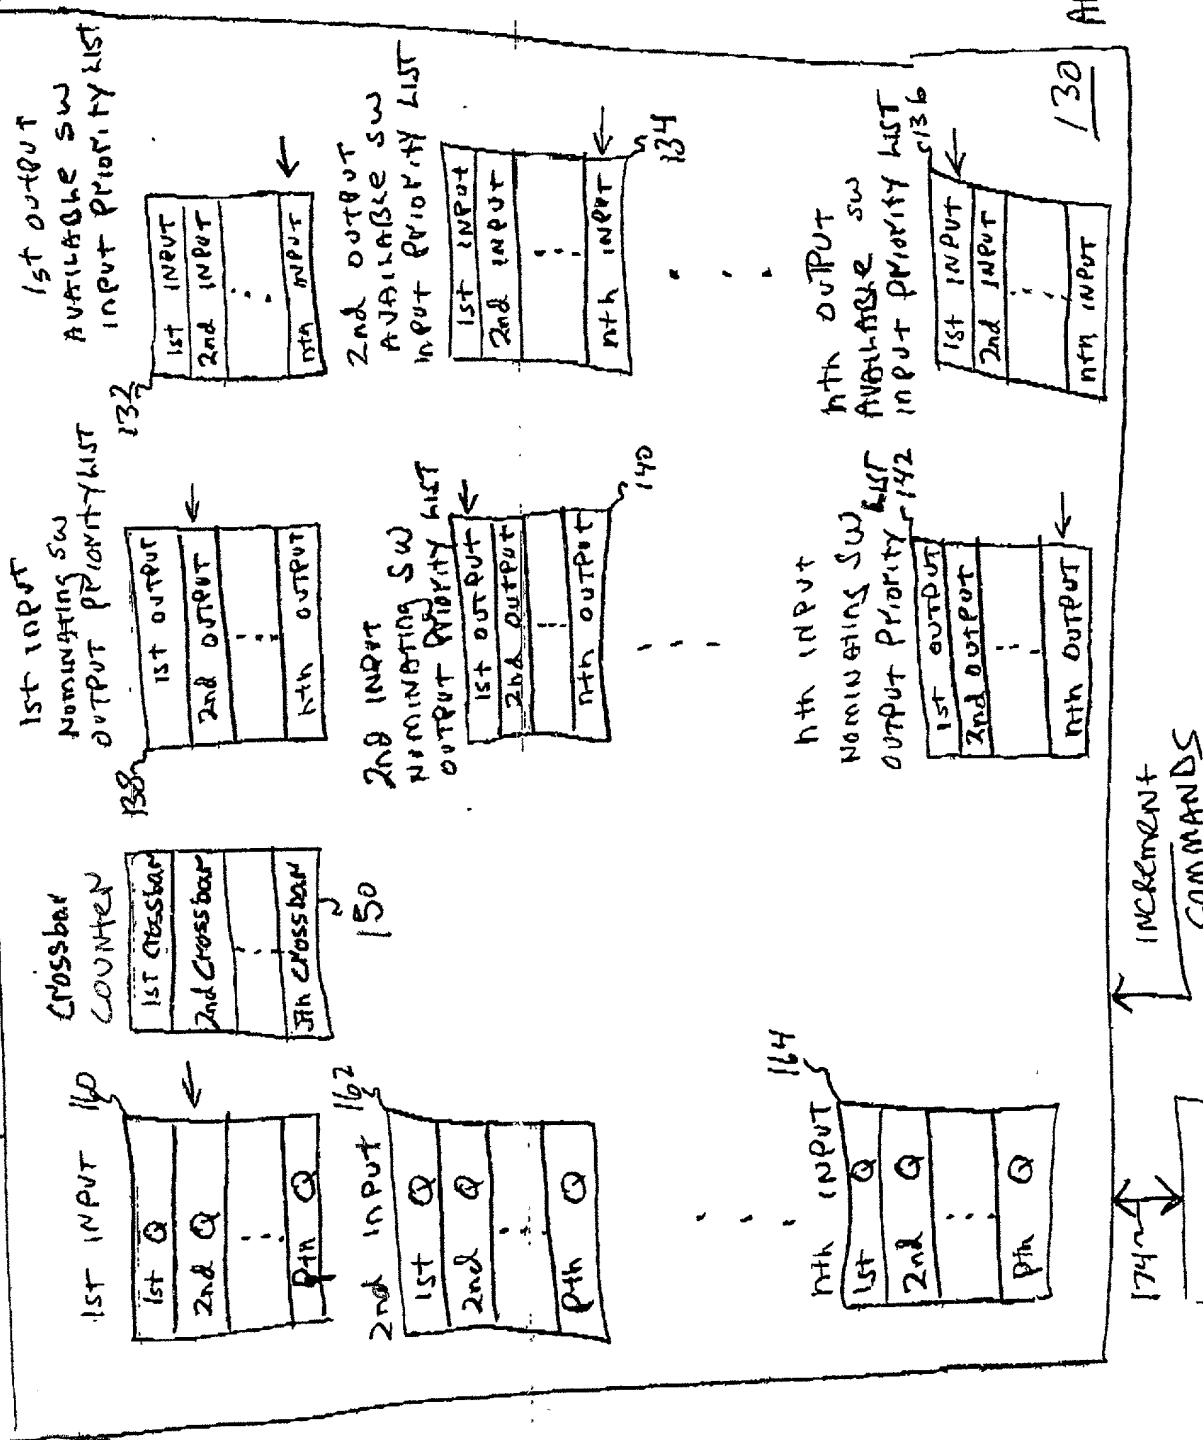 1st INPUT 160
1st Q
2nd Q
Pth Q
2nd INPUT 162
1st Q
2nd Q
Pth Q
nth INPUT
164
1st Q
2nd Q
Pth Q
Crossbar
COUNTER
1ST Crossbar
2nd Crossbar
Crossbar
150
1st INPUT
NOMINATING SW
OUTPUT PRIORITY LIST
138
1st OUTPUT
2nd OUTPUT
nth OUTPUT
2nd INPUT
NOMINATING SW
OUTPUT PRIORITY LIST
1st OUTPUT
2nd OUTPUT
nth OUTPUT
140
nth INPUT
NOMINATING SW
OUTPUT PRIORITY LIST
142
1st OUTPUT
2nd OUTPUT
nth OUTPUT
1st OUTPUT
AVAILABLE SW
INPUT PRIORITY LIST
132
1st INPUT
2nd INPUT
nth INPUT
2nd OUTPUT
AVAILABLE SW
INPUT PRIORITY LIST
1st INPUT
2nd INPUT
nth INPUT
134
nth OUTPUT
AVAILABLE SW
INPUT PRIORITY LIST
136
1st INPUT
2nd INPUT
nth INPUT
130
174
INCREMENT
COMMANDS